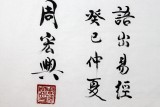 語出易經
癸巳仲夏
周宏興